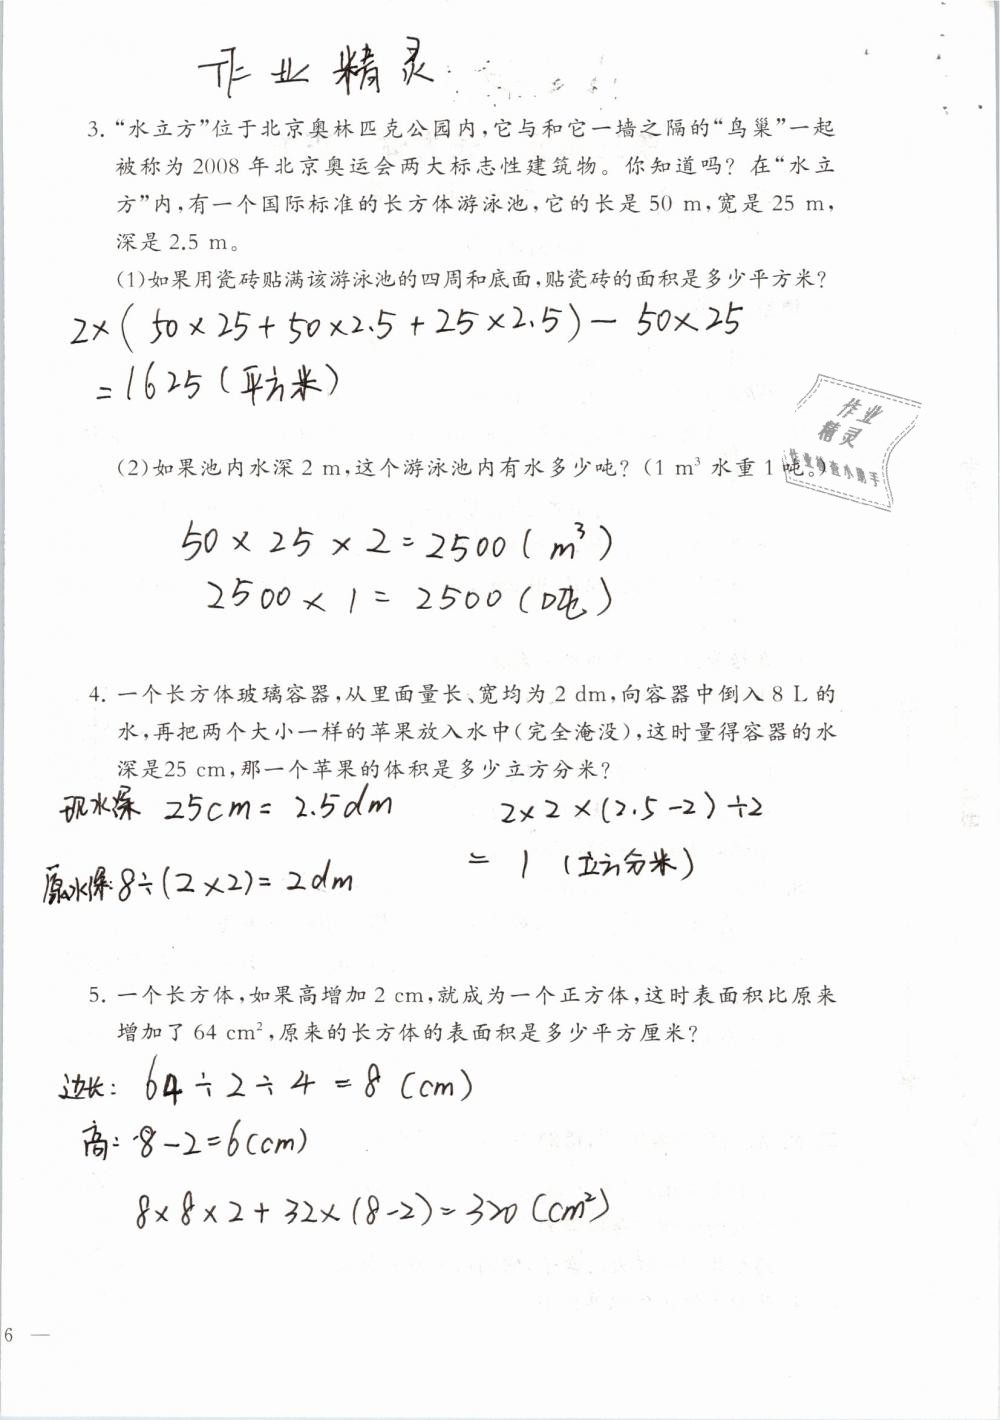 作业精灵
3. “水立方”位于北京奥林匹克公园内,它与和它一墙之隔的“鸟巢”一起
被称为 2008 年北京奥运会两大标志性建筑物。你知道吗？在“水立
方”内,有一个国际标准的长方体游泳池,它的长是 50 m,宽是 25 m,
深是 2.5 m。
(1)如果用瓷砖贴满该游泳池的四周和底面,贴瓷砖的面积是多少平方米?
2×(50×25+50×2.5+25×2.5)-50×25
=1625(平方米)
作业
精灵
作业检查小助手
(2)如果池内水深 2 m,这个游泳池内有水多少吨? (1 m³ 水重 1 吨。)
50×25×2=2500(m³)
2500×1=2500(吨)
4. 一个长方体玻璃容器,从里面量长、宽均为 2 dm,向容器中倒入 8 L 的
水,再把两个大小一样的苹果放入水中(完全淹没),这时量得容器的水
深是25 cm,那一个苹果的体积是多少立方分米?
现水深 25cm=2.5dm
2×2×(2.5-2)÷2
=1(立方分米)
原水深:8÷(2×2)=2dm
5. 一个长方体,如果高增加 2 cm,就成为一个正方体,这时表面积比原来
增加了 64 cm²,原来的长方体的表面积是多少平方厘米?
边长: 64÷2÷4=8(cm)
高: 8-2=6(cm)
8×8×2+32×(8-2)=320(cm²)
6 —